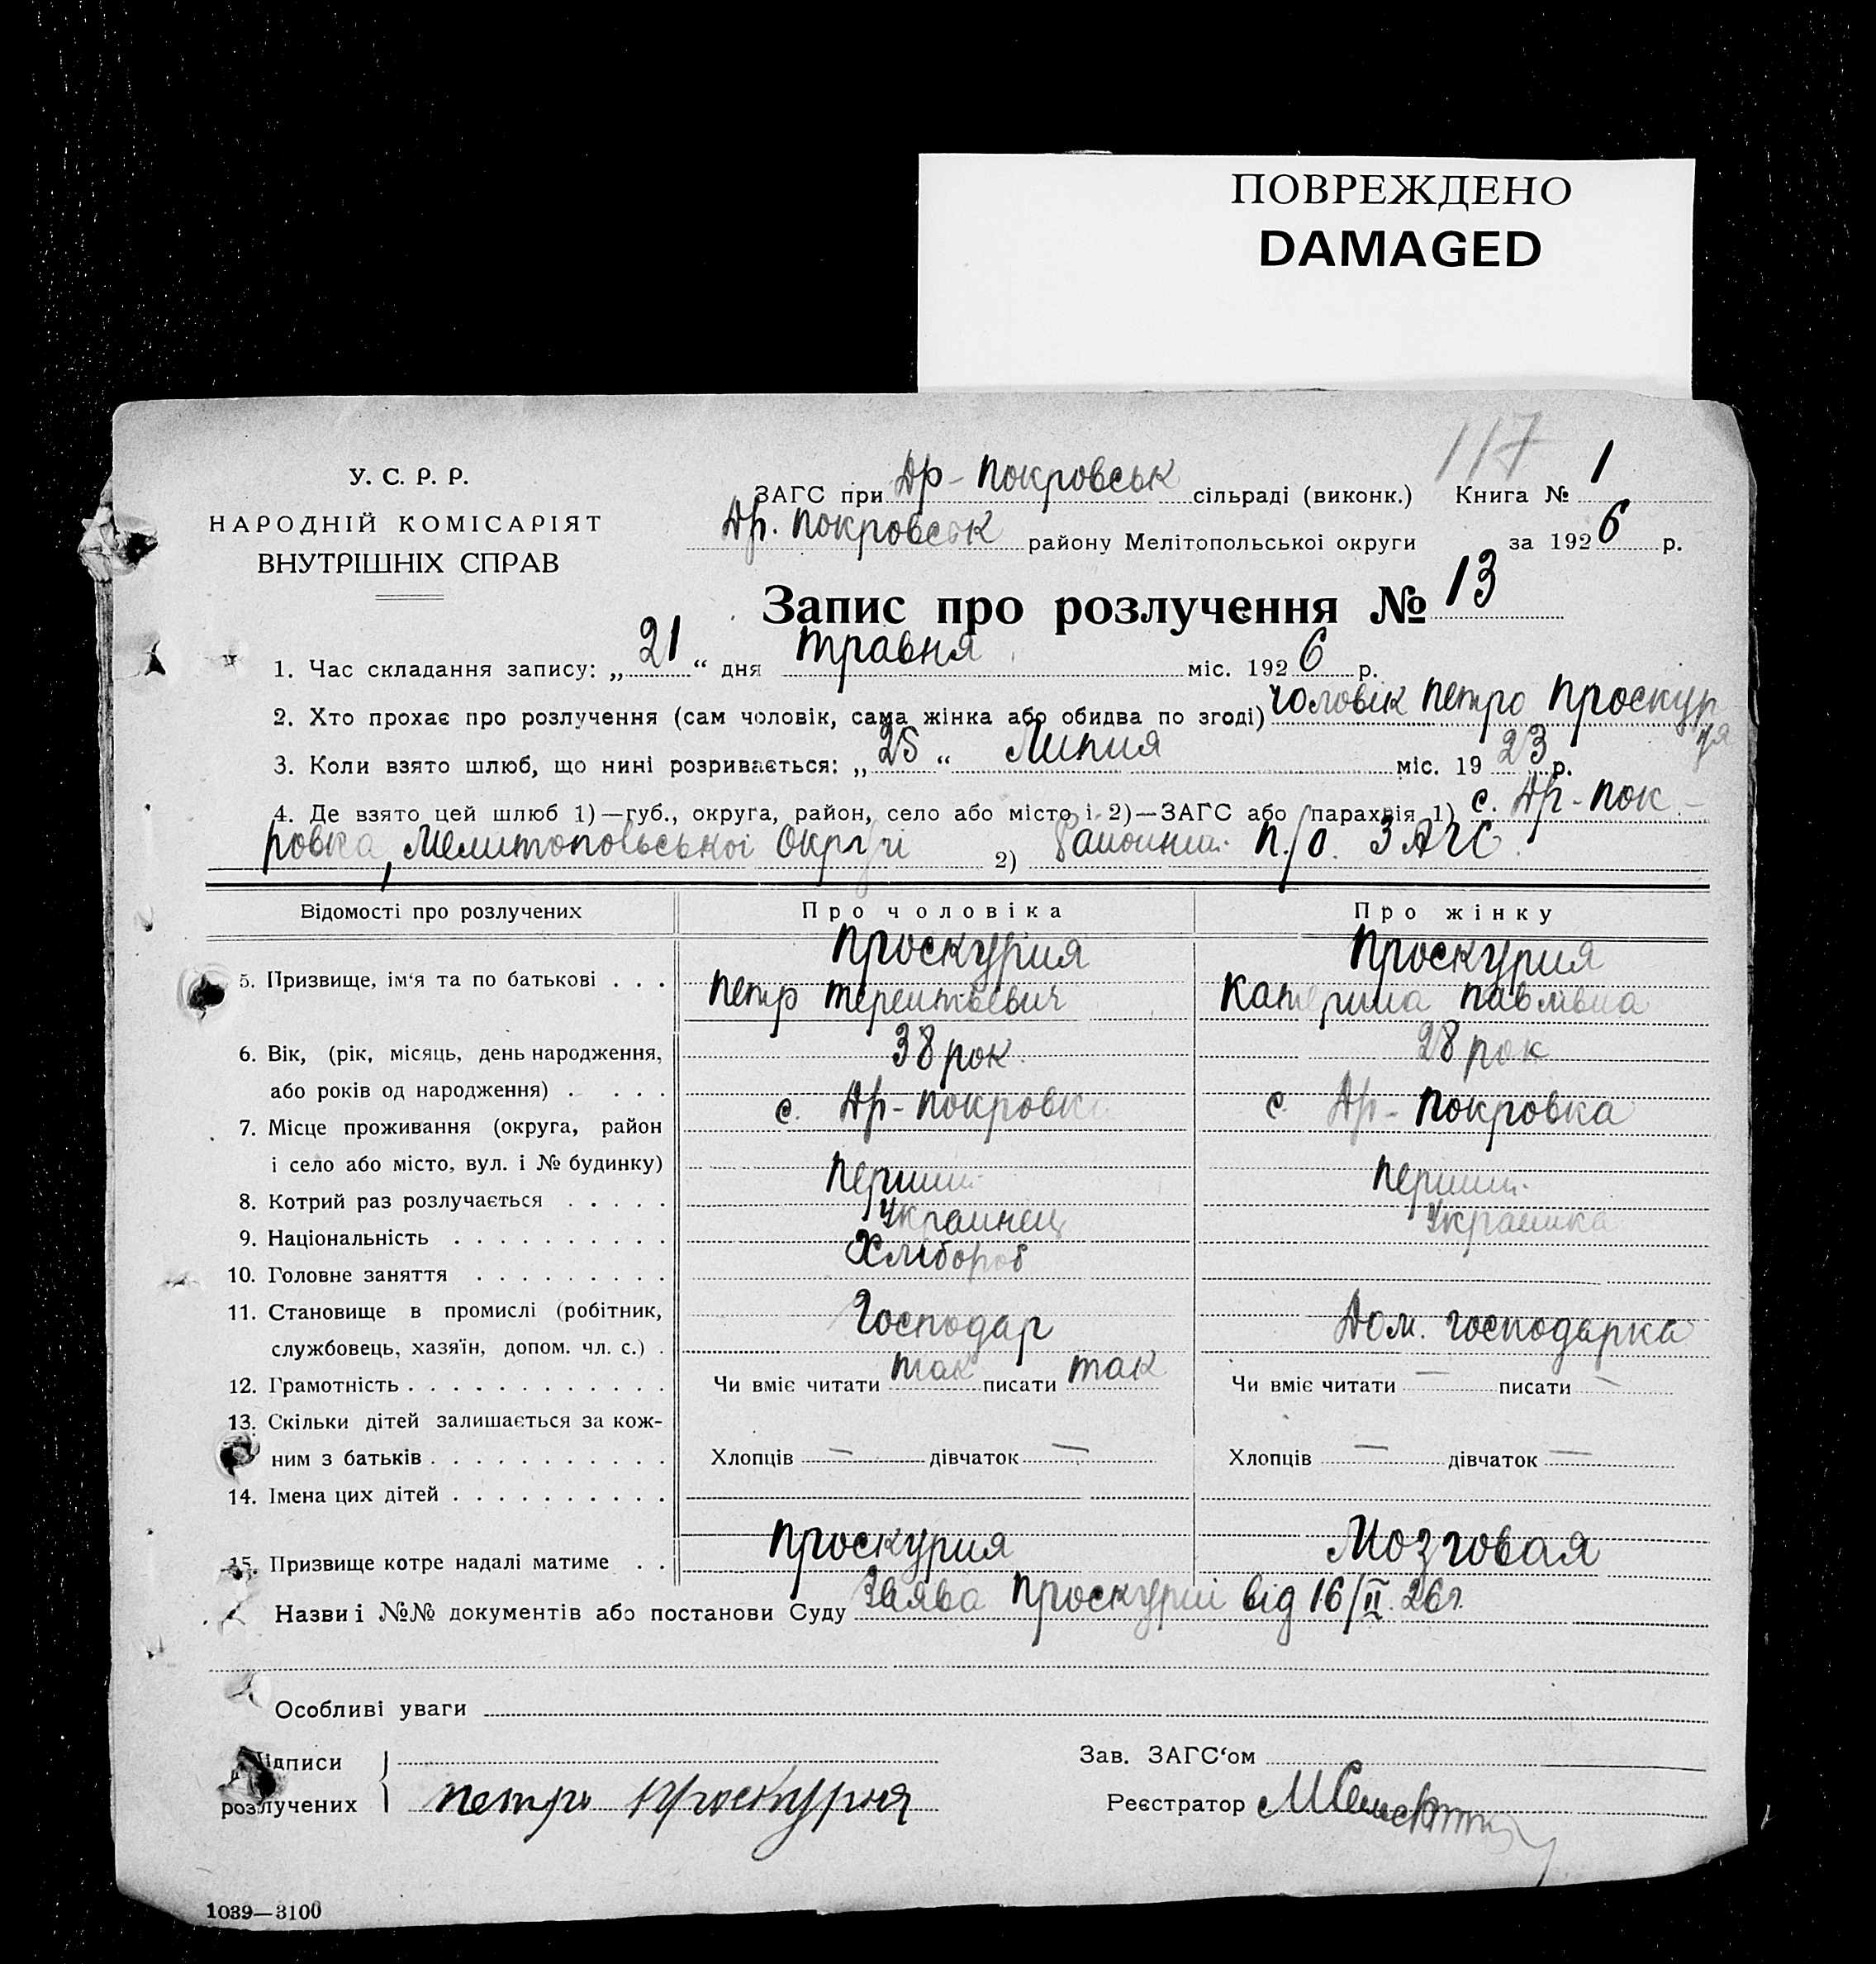 ПОВРЕЖДЕНО
DAMAGED
117
У. С. Р. Р.
НАРОДНІЙ КОМІСАРІЯТ
ВНУТРІШНІХ СПРАВ
ЗАГС при Др-Покровськ сільраді (виконк.) Книга № 1
Др. Покровськ району Мелітопольської округи за 1926 р.
Запис про розлучення № 13
1. Час складання запису: „21“ дня травня міс. 1926 р.
2. Хто прохає про розлучення (сам чоловік, сама жінка або обидва по згоді) чоловік Петро Проскур
ня
3. Коли взято шлюб, що нині розривається: „25“ Липня міс. 1923 р.
4. Де взято цей шлюб 1)—губ., округа, район, село або місто і 2)—ЗАГС або парахвія 1) с. Др-Пок-
ровка, Мелитопольської Округи 2) Районний П/О. ЗАГС.
Відомості про розлучених Про чоловіка Про жінку
Проскурня Проскурня
5. Призвище, ім‘я та по батькові . . . Петр Терентьевич Катерина Павлівна
6. Вік, (рік, місяць, день народження, 38 рок. 28 рок
або років од народження) . . . .
с. Др-Покровка с. Др-Покровка
7. Місце проживання (округа, район
і село або місто, вул. і № будинку)
8. Котрий раз розлучається . . . . . Перший Перший
9. Національність . . . . . . . . . . Украинец Украинка
10. Головне заняття . . . . . . . . . Хлібороб
11. Становище в промислі (робітник, Господар Дом. господарка
службовець, хазяїн, допом. чл. с.) .
12. Грамотність . . . . . . . . . . . . Чи вміє читати так писати так Чи вміє читати — писати —
13. Скільки дітей залишається за кож-
ним з батьків . . . . . . . . . . . Хлопців — дівчаток — Хлопців — дівчаток —
14. Імена цих дітей . . . . . . . . . .
15. Призвище котре надалі матиме . . Проскурня Мозговая
Назви і №№ документів або постанови Суду Заява Проскурні від 16/II 26 г.
Особливі уваги
Підписи Зав. ЗАГС‘ом
розлучених Петро Проскурня Реєстратор
1039—3100